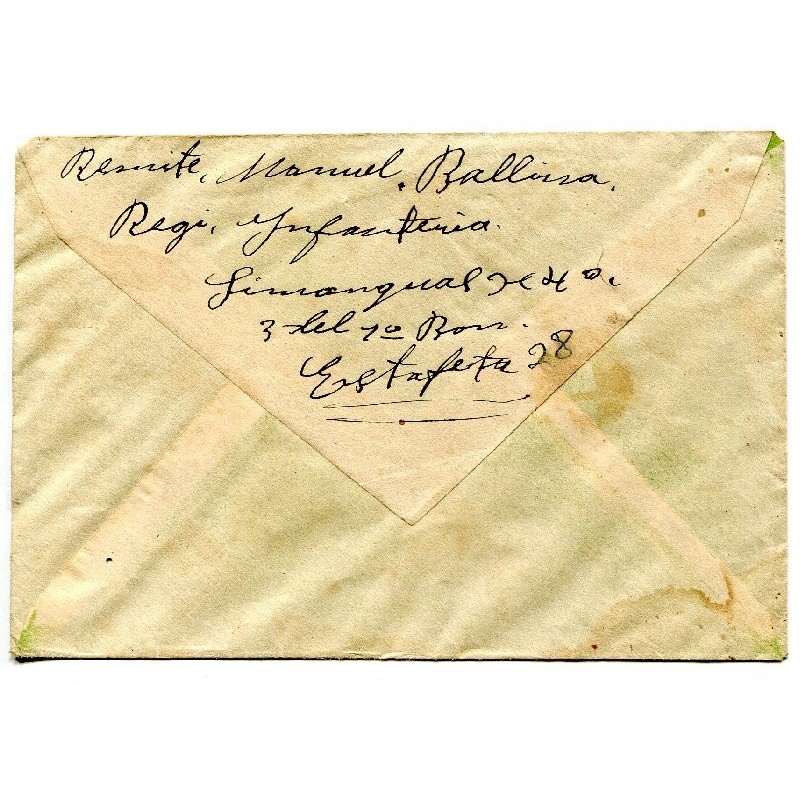 Remite, Manuel Ballina.
Regi. Ynfanteria.
Simangual 40.
3 del 1o Bon.
Estafeta 28